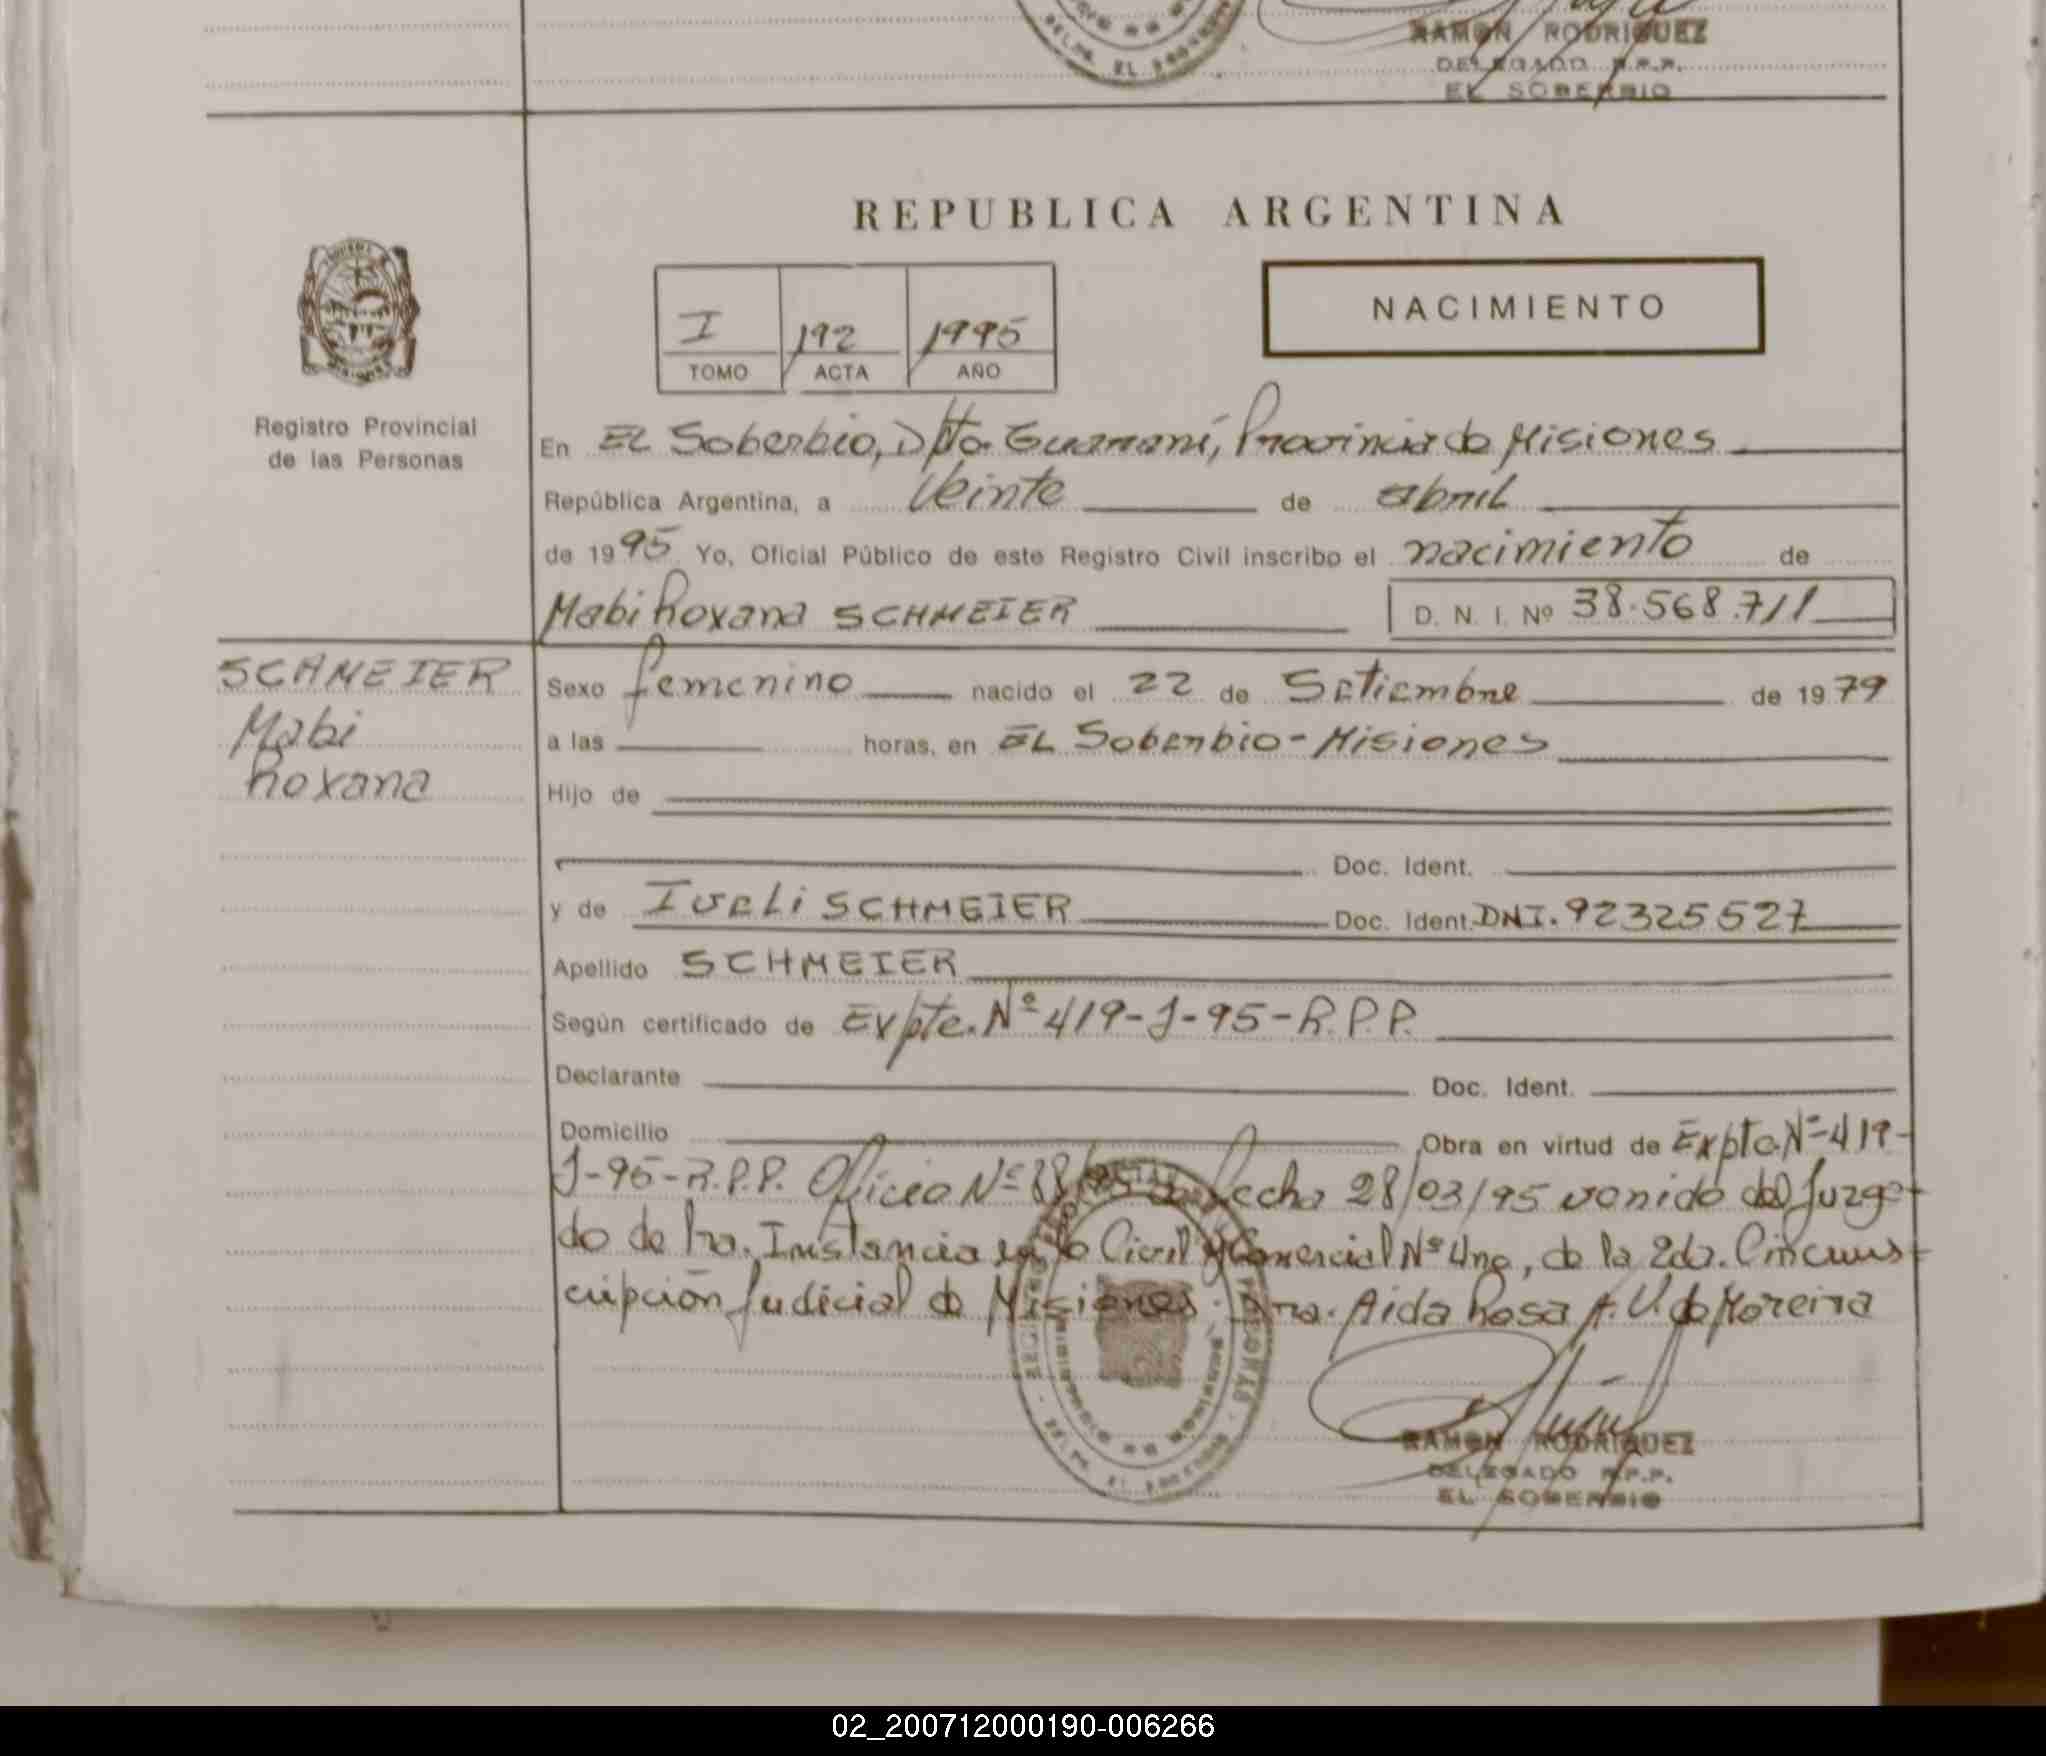 RAMON RODRIGUEZ
DELEGADO R.P.P.
EL SOBERBIO
REPUBLICA ARGENTINA
I 192 1995
TOMO ACTA AÑO
NACIMIENTO
Registro Provincial
de las Personas
En EL Soberbio, Dpto. Guaraní, Provincia de Misiones
República Argentina, a Veinte de abril
de 1995 Yo, Oficial Público de este Registro Civil inscribo el nacimiento de
Mabi Roxana SCHMEIER D. N. I. Nº 38.568.711
SCHMEIER
Mabi
Roxana
Sexo femenino nacido el 22 de Setiembre de 1979
a las horas, en EL Soberbio-Misiones
Hijo de
Doc. Ident.
y de Iveli SCHMEIER Doc. Ident. DNI. 92325527
Apellido SCHMEIER
Según certificado de Expte. Nº 419-J-95-R.P.P.
Declarante Doc. Ident.
Domicilio Obra en virtud de Expte. Nº 419-
J-95-R.P.P. Oficio Nº 88/95 de fecha 28/03/95 venido del Juzga-
do de 1ra. Instancia en lo Civil y Comercial Nº Uno, de la 2da. Circuns-
cripción Judicial de Misiones. Dra. Aida Rosa A. V. de Moreira
RAMON RODRIGUEZ
DELEGADO R.P.P.
EL SOBERBIO
02_200712000190-006266